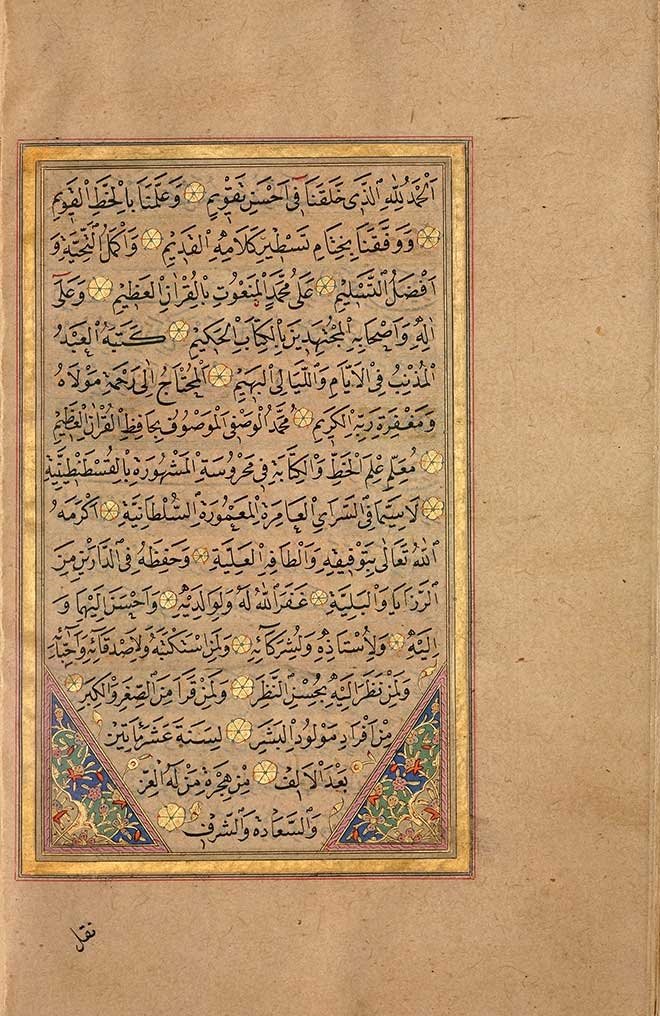 اَلْحَمْدُ لِلّٰهِ الَّذِي خَلَقَنَا فِي اَحْسَنِ تَقْوِيمٍ وَعَلَّمَنَا بِالْخَطِّ الْقَوِيمِ
وَوَفَّقَنَا بِخِتَامِ تَسْطِيرِ كَلَامِهِ الْقَدِيمِ وَاَكْمَلُ التَّحِيَّةِ وَ
اَفْضَلُ التَّسْلِيمِ عَلٰى مُحَمَّدٍ الْمَنْعُوتِ بِالْقُرْاٰنِ الْعَظِيمِ وَعَلٰى
اٰلِهِ وَاَصْحَابِهِ الْمُجْتَهِدِينَ بِالْكِتَابِ الْحَكِيمِ كَتَبَهُ الْعَبْدُ
الْمُذْنِبُ فِي الْاَيَّامِ وَاللَّيَالِي الْبَهِيمِ اَلْمُحْتَاجُ اِلٰى رَحْمَةِ مَوْلَاهُ
وَمَغْفِرَةِ رَبِّهِ الْكَرِيمِ مُحَمَّدُ الْوَصْفِي الْمَوْصُوفُ بِحَافِظِ الْقُرْاٰنِ الْعَظِيمِ
مُعَلِّمِ عِلْمِ الْخَطِّ وَالْكِتَابَةِ فِي مَحْرُوسَةِ الْمَشْهُورَةِ بِالْقُسْطَنْطِنِيَّةِ
لَاسِيَّمَا فِي السَّرَايِ الْعَامِرَةِ الْمَعْمُورَةِ السُّلْطَانِيَّةِ اَكْرَمَهُ
اللّٰهُ تَعَالٰى بِتَوْفِيقِهِ وَاَلْطَافِهِ الْعَلِيَّةِ وَحَفِظَهُ فِي الدَّارَيْنِ مِنَ
الرَّزَايَا وَالْبَلِيَّةِ غَفَرَ اللّٰهُ لَهُ وَلِوَالِدَيْهِ وَاَحْسَنَ اِلَيْهِمَا وَ
اِلَيْهِ وَلِاُسْتَاذِهِ وَلِشُرَكَائِهِ وَلِمَنِ اسْتَكْتَبَهُ وَلِاَصْدِقَائِهِ وَاَحِبَّائِهِ
وَلِمَنْ نَظَرَ اِلَيْهِ بِحُسْنِ النَّظَرِ وَلِمَنْ قَرَاَ مِنَ الصِّغَرِ وَالْكِبَرِ
مِنْ اَفْرَادِ مَوْلُودِ الْبَشَرِ لِسَنَةِ عَشَرَ مِاَتَيْنِ
بَعْدَ الْاَلْفِ مِنْ هِجْرَةِ مَنْ لَهُ الْعِزُّ
وَالسَّعَادَةُ وَالشَّرَفُ